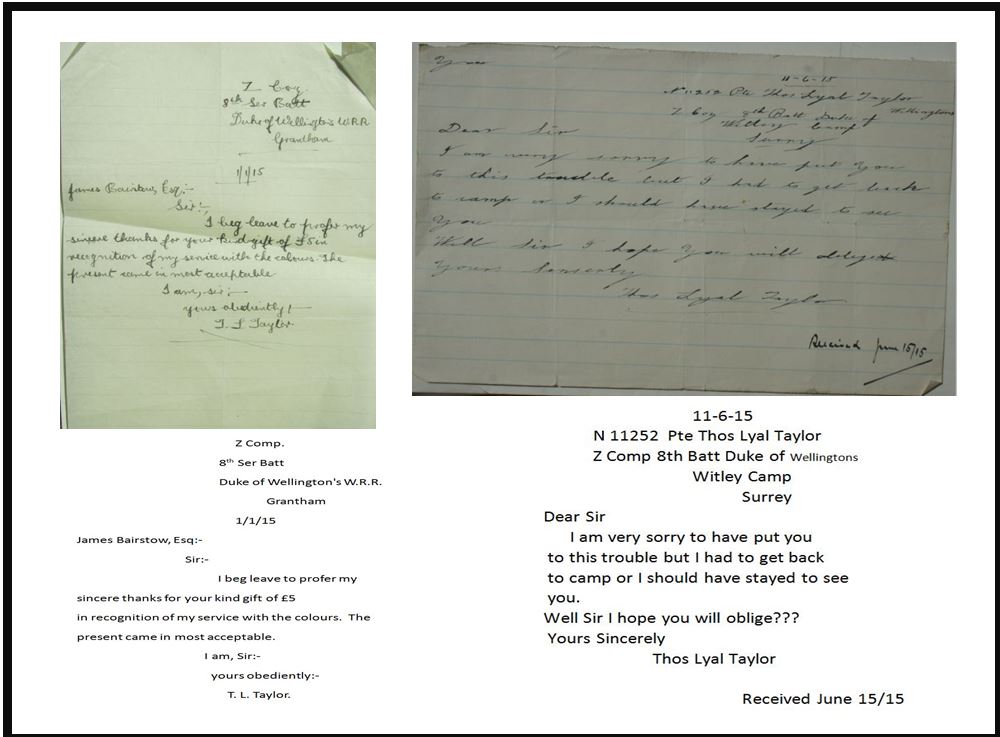 Z Coy.
8th Ser Batt
Duke of Wellington's W.R.R
Grantham
1/1/15
James Bairstow, Esq:-
Sir:-
I beg leave to profer my
sincere thanks for your kind gift of £5 in
recognition of my service with the colours. The
present came in most acceptable
I am, sir:-
yours obediently:-
T. L Taylor.
11-6-15
N 11252 Pte Thos Lyal Taylor
Z Coy 8th Batt Duke of Wellingtons
Witley Camp
Surry
Dear Sir
I am very sorry to have put you
to this trouble but I had to get back
to camp or I should have stayed to see
You
Well Sir I hope you will
Yours
Thos Lyal Taylor
Received June 15/15
Z Comp.
8th Ser Batt
Duke of Wellington's W.R.R.
Grantham
1/1/15
James Bairstow, Esq:-
Sir:-
I beg leave to profer my
sincere thanks for your kind gift of £5
in recognition of my service with the colours. The
present came in most acceptable.
I am, Sir:-
yours obediently:-
T. L. Taylor.
11-6-15
N 11252 Pte Thos Lyal Taylor
Z Comp 8th Batt Duke of Wellingtons
Witley Camp
Surrey
Dear Sir
I am very sorry to have put you
to this trouble but I had to get back
to camp or I should have stayed to see
you.
Well Sir I hope you will oblige???
Yours Sincerely
Thos Lyal Taylor
Received June 15/15